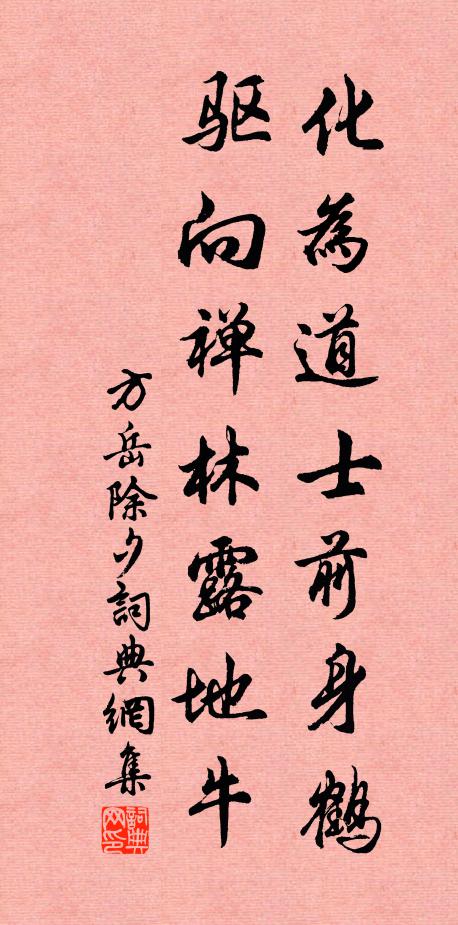 化為道士前身鶴
驱向禅林露地牛
方岳除夕詞典網集
詞典网印